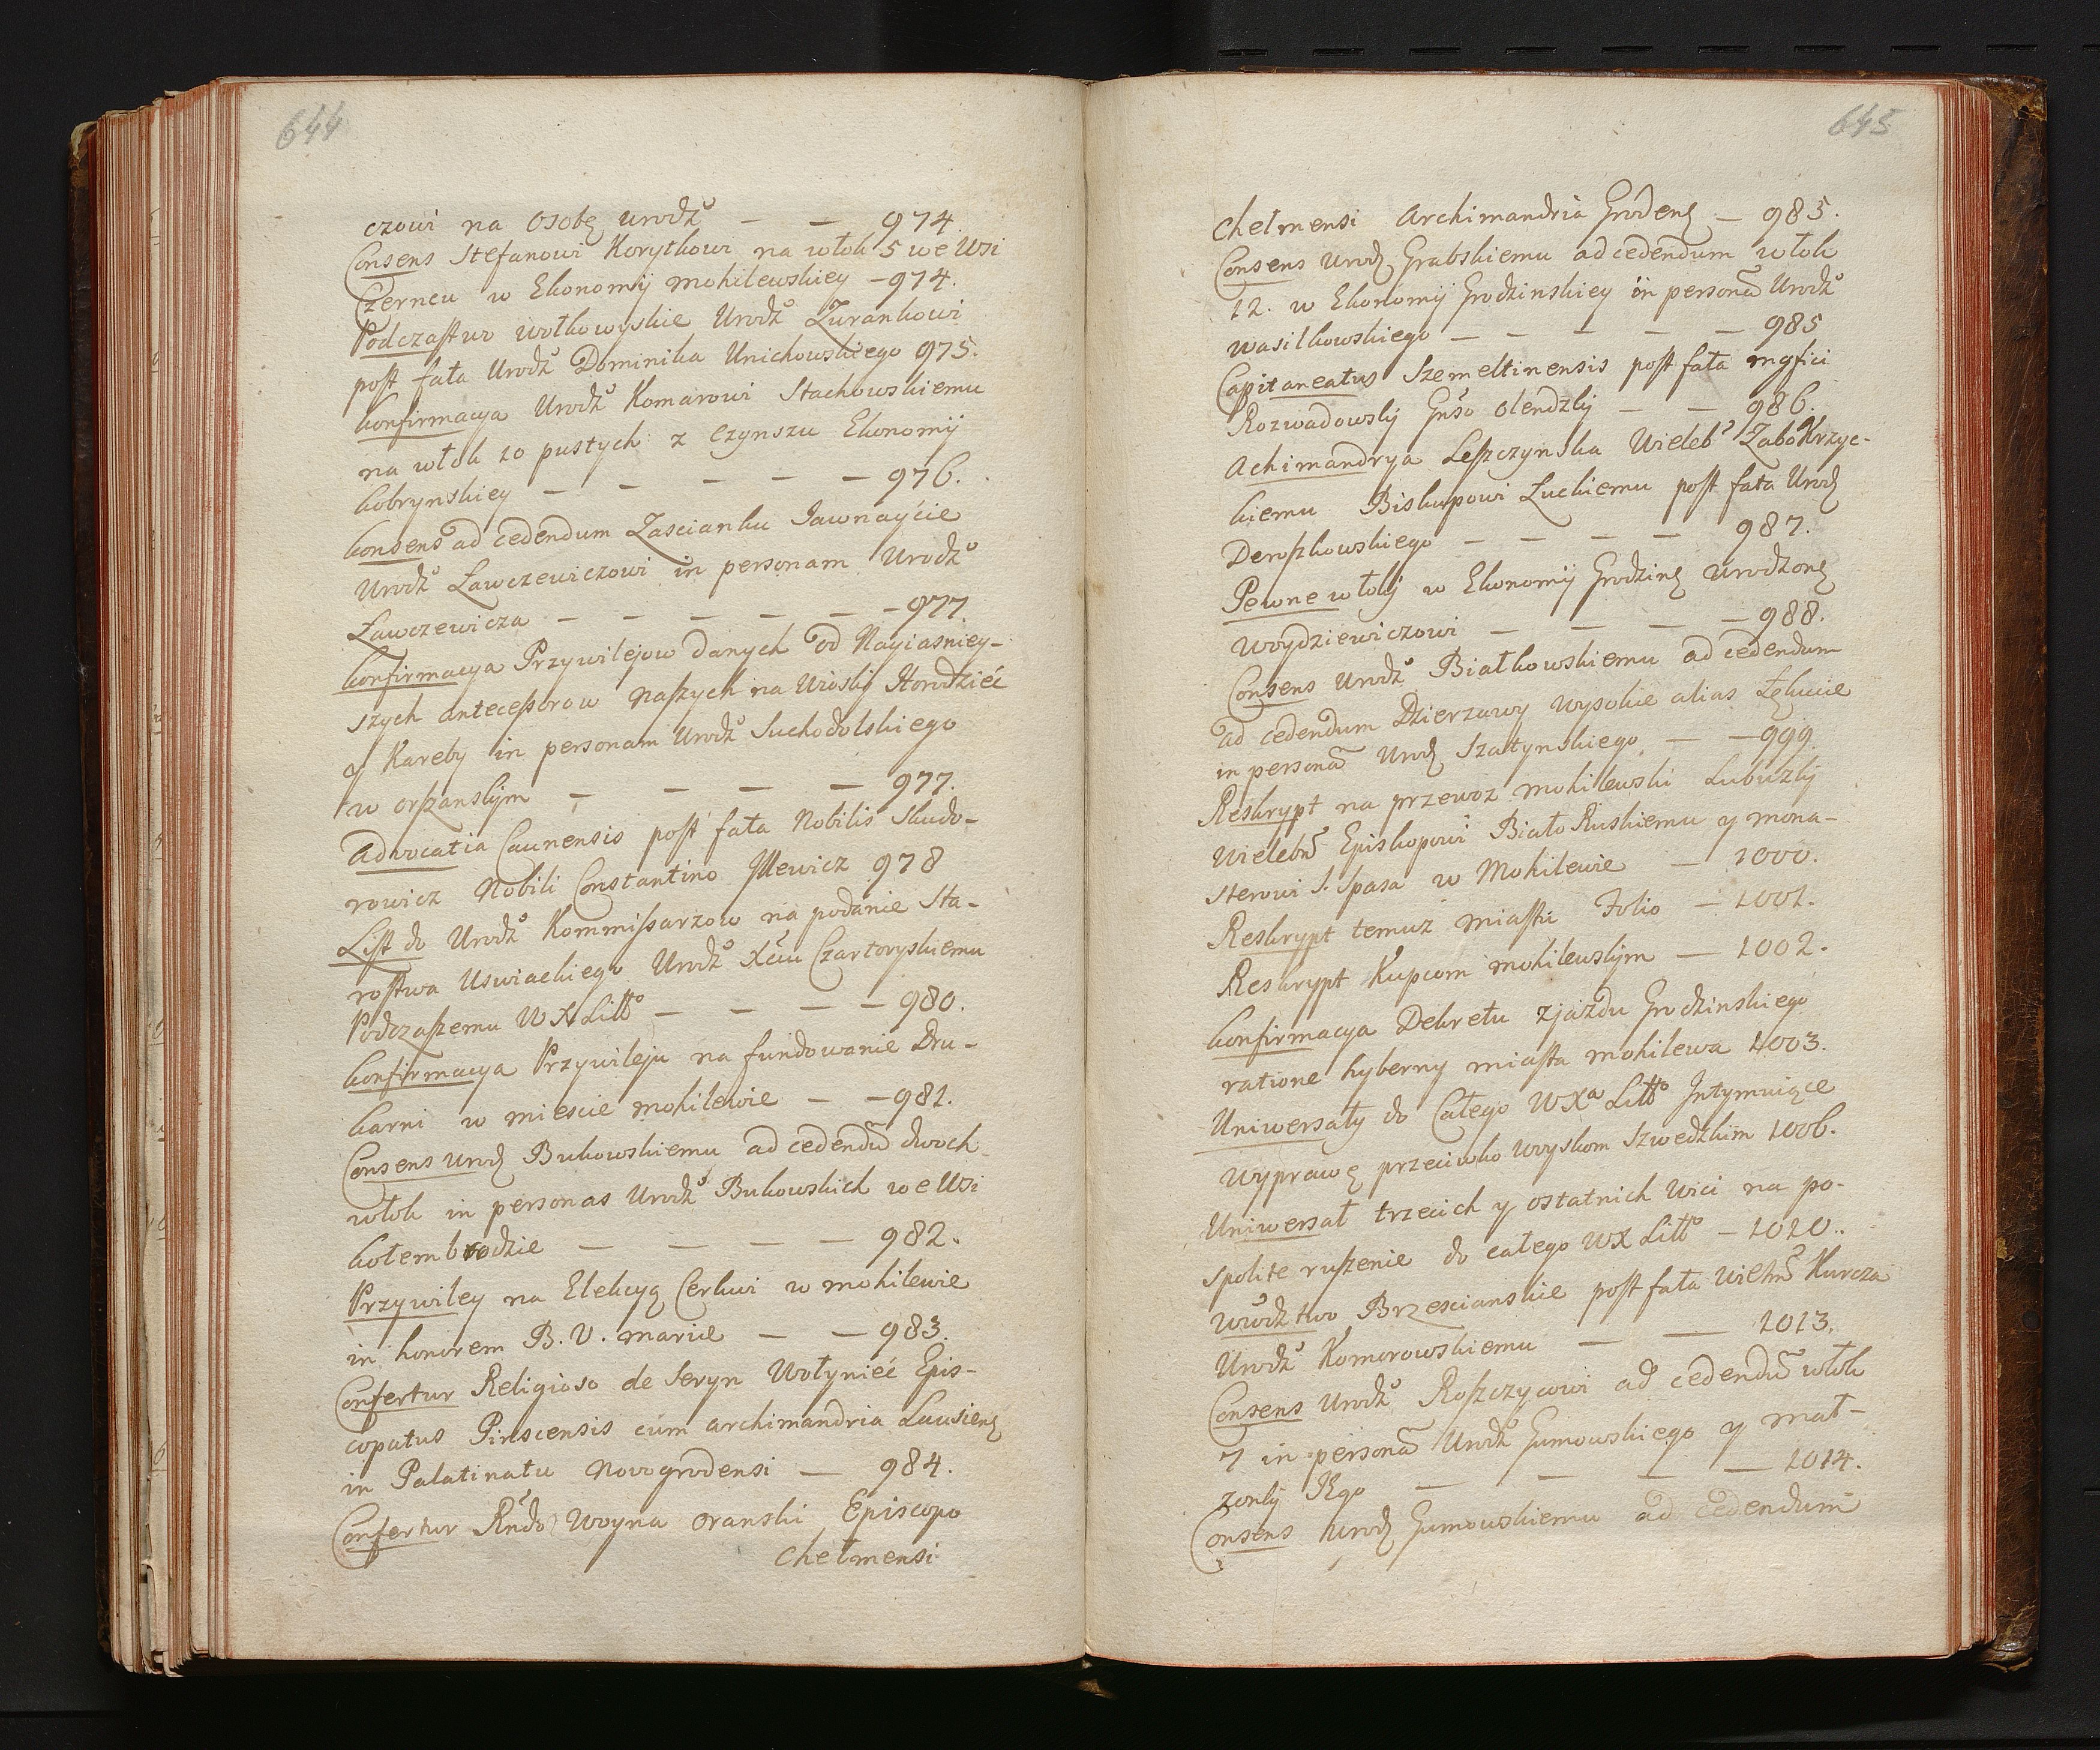 644
czowi na osobę urodź° — — 974.
Consens Stefanowi Korytkowi na włok 5 we Wsi
Czerncu w Ekonomij mohilewskiey — 974.
Podczastwo wołkowyskie Urodź° Zurankowi
post fata Urodź° Dominika Unichowskiego 975.
konfirmacya Urodź° Komarowi Stachowskiemu
na włok 10 pustych z czynszu Ekonomij
kobrynskiey — — — — — 976.
konsens ad cedendum Zascianku Jawnayćie
Urodź° Ławczewiczowi in personam Urodź°
Ławczewicza — — — — — 977.
konfirmacya Przywilejow danych od Nayiasniey-
szych antecessorow naszych na Wioski Horodźieć
y Kareby in personam Urodź° Suchodolskiego
w orszanskim — — — — 977.
Advocatia Caunensis post fata Nobilis Skudo-
rowicz Nobili Constantino Illewicz 978
List do Urodź° Kommissarzow na podanie Sta-
rostwa Uswiackiego Urodź° Xćiu Czartoryskiemu
Podczaszemu W X Litt° — — — — 980.
konfirmacya Przywileju na fundowanie Dru-
karni w miescie mohilewie — — 981.
Consens Urodz Bukowskiemu ad cedendū dwoch
włok in personas Urodź° Bukowskich we Wsi
kołembrodzie — — — — 982.
Przywiley na Elekcyą Cerkwi w mohilewie
in honorem B. V. mariæ — — 983.
Confertur Religioso de Seryn Wołynieć Epis-
copatus Pinscensis cum archimandria Lausienę
in Palatinatu Novogrodensi — 984.
Confertur Rndo Woyna oranski Episcopo
chełmensi
645
chełmensi Archimandria Grodenę — 985.
Consens Urodz Grabskiemu ad cedendum włok
12. w Ekonomij Grodzinskiey in personā Urodź°
wasilkowskiego — — — — — 985
Capitaneatus Szemeltinensis post fata mgfici
Rozwadowski Gnso olendzki — — 986.
Achimandrya Leszczynska Wieleb? ZaboKrzyc-
kiemu Biskupowi Łuckiemu post fata Urodz
Deroszkowskiego — — — — 987.
Pewne włoki w Ekonomij Grodzinę Urodzonę
woydziewiczowi — — — — 988.
Consens Urodź° Białkowskiemu ad cedendum
ad cedendum Dzierzawy wysokie alias Łękucie
in personā Urodz Szałynskiego — — 999.
Reskrypt na przewoz mohilewski Łubuzki
Wielebn̄ Episkopowi BiałoRuskiemu y mona-
sterowi S. Spasa w Mohilewie — 1000.
Reskrypt temuz miastu Folio — 1001.
Reskrypt Kupcom mohilewskim — 1002.
konfirmacya Dekretu zjazdu Grodzinskiego
ratione hyberny miasta mohilewa 1003.
Uniwersały do Całego WXa Litt° Intymuiące
wyprawę przeciwko woyskom Szwedzkim 1006.
Uniwersał trzecich y ostatnich wici na po-
spolite ruszenie do całego WX Litt° — 1010.
wwodztwo Brzescianskie post fata wielm̄ Kurcza
Urodź° Komorowskiemu — — 1013.
Consens Urodź° Roszczycowi ad cedendū włok
7 in personā Urodź° Gumowskiego y mał-
zonki Iego — — — — 1014.
Consens Urodz Gumowskiemu ad cedendum